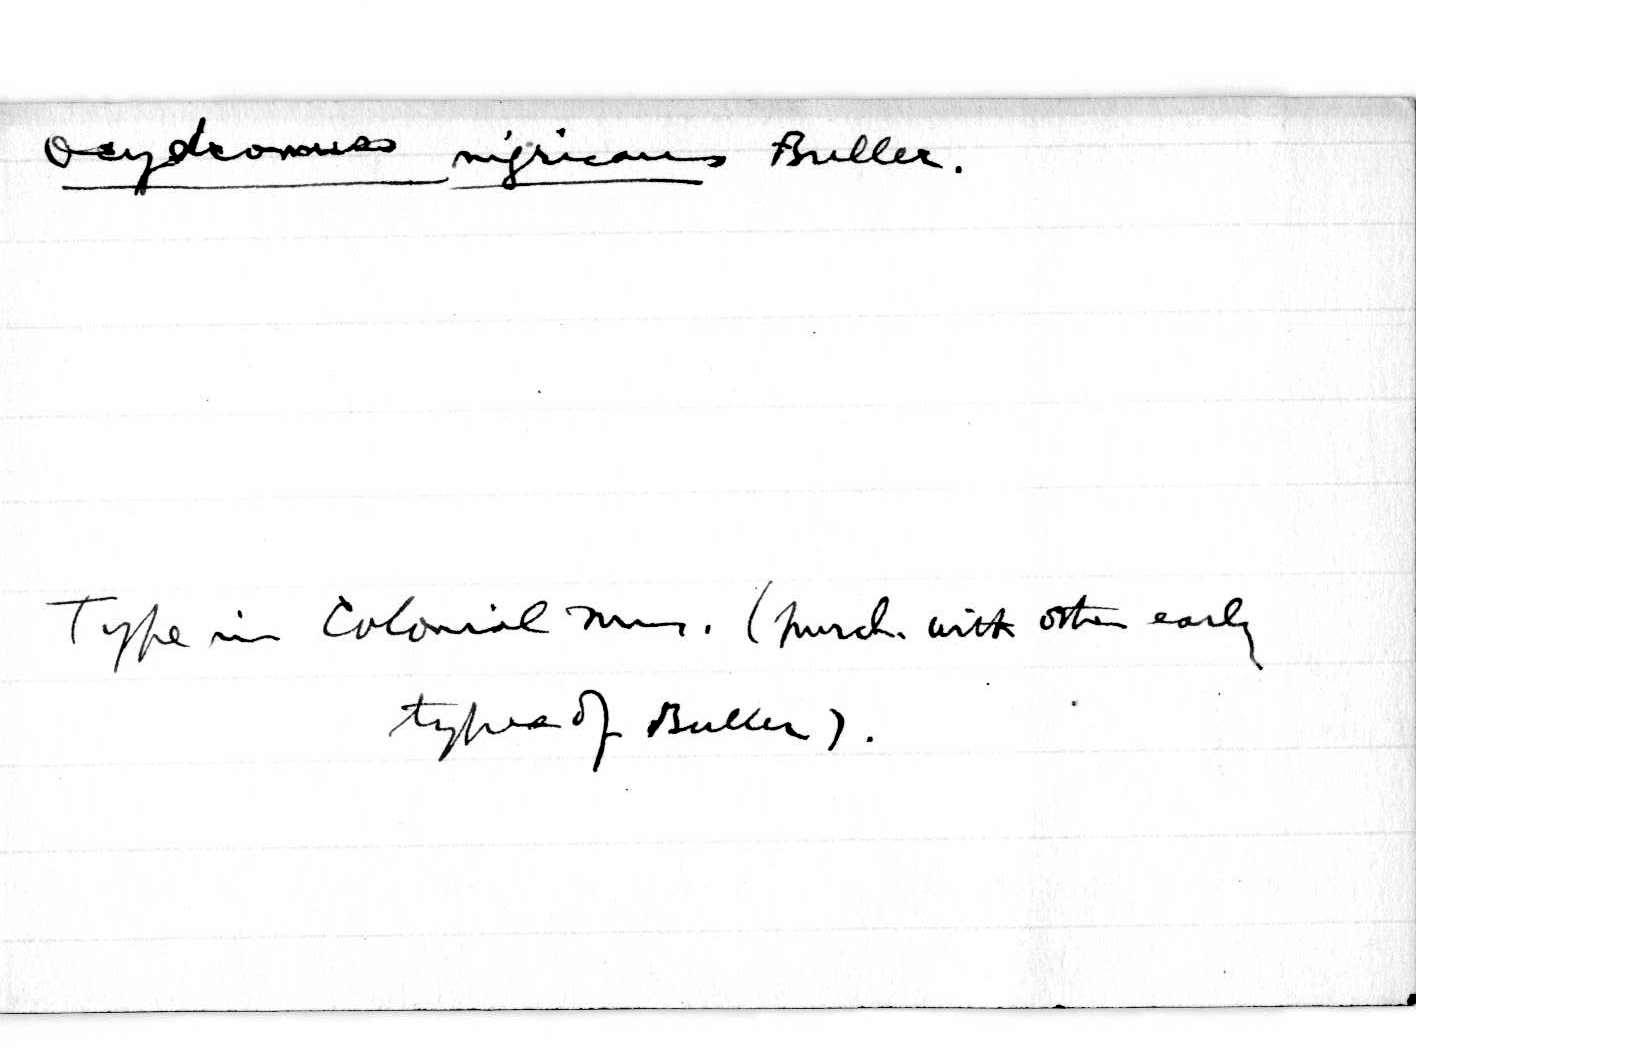 Ocydromus nigricans Buller.
Type in Colonial Mus. (purch. with other early
types of Buller).